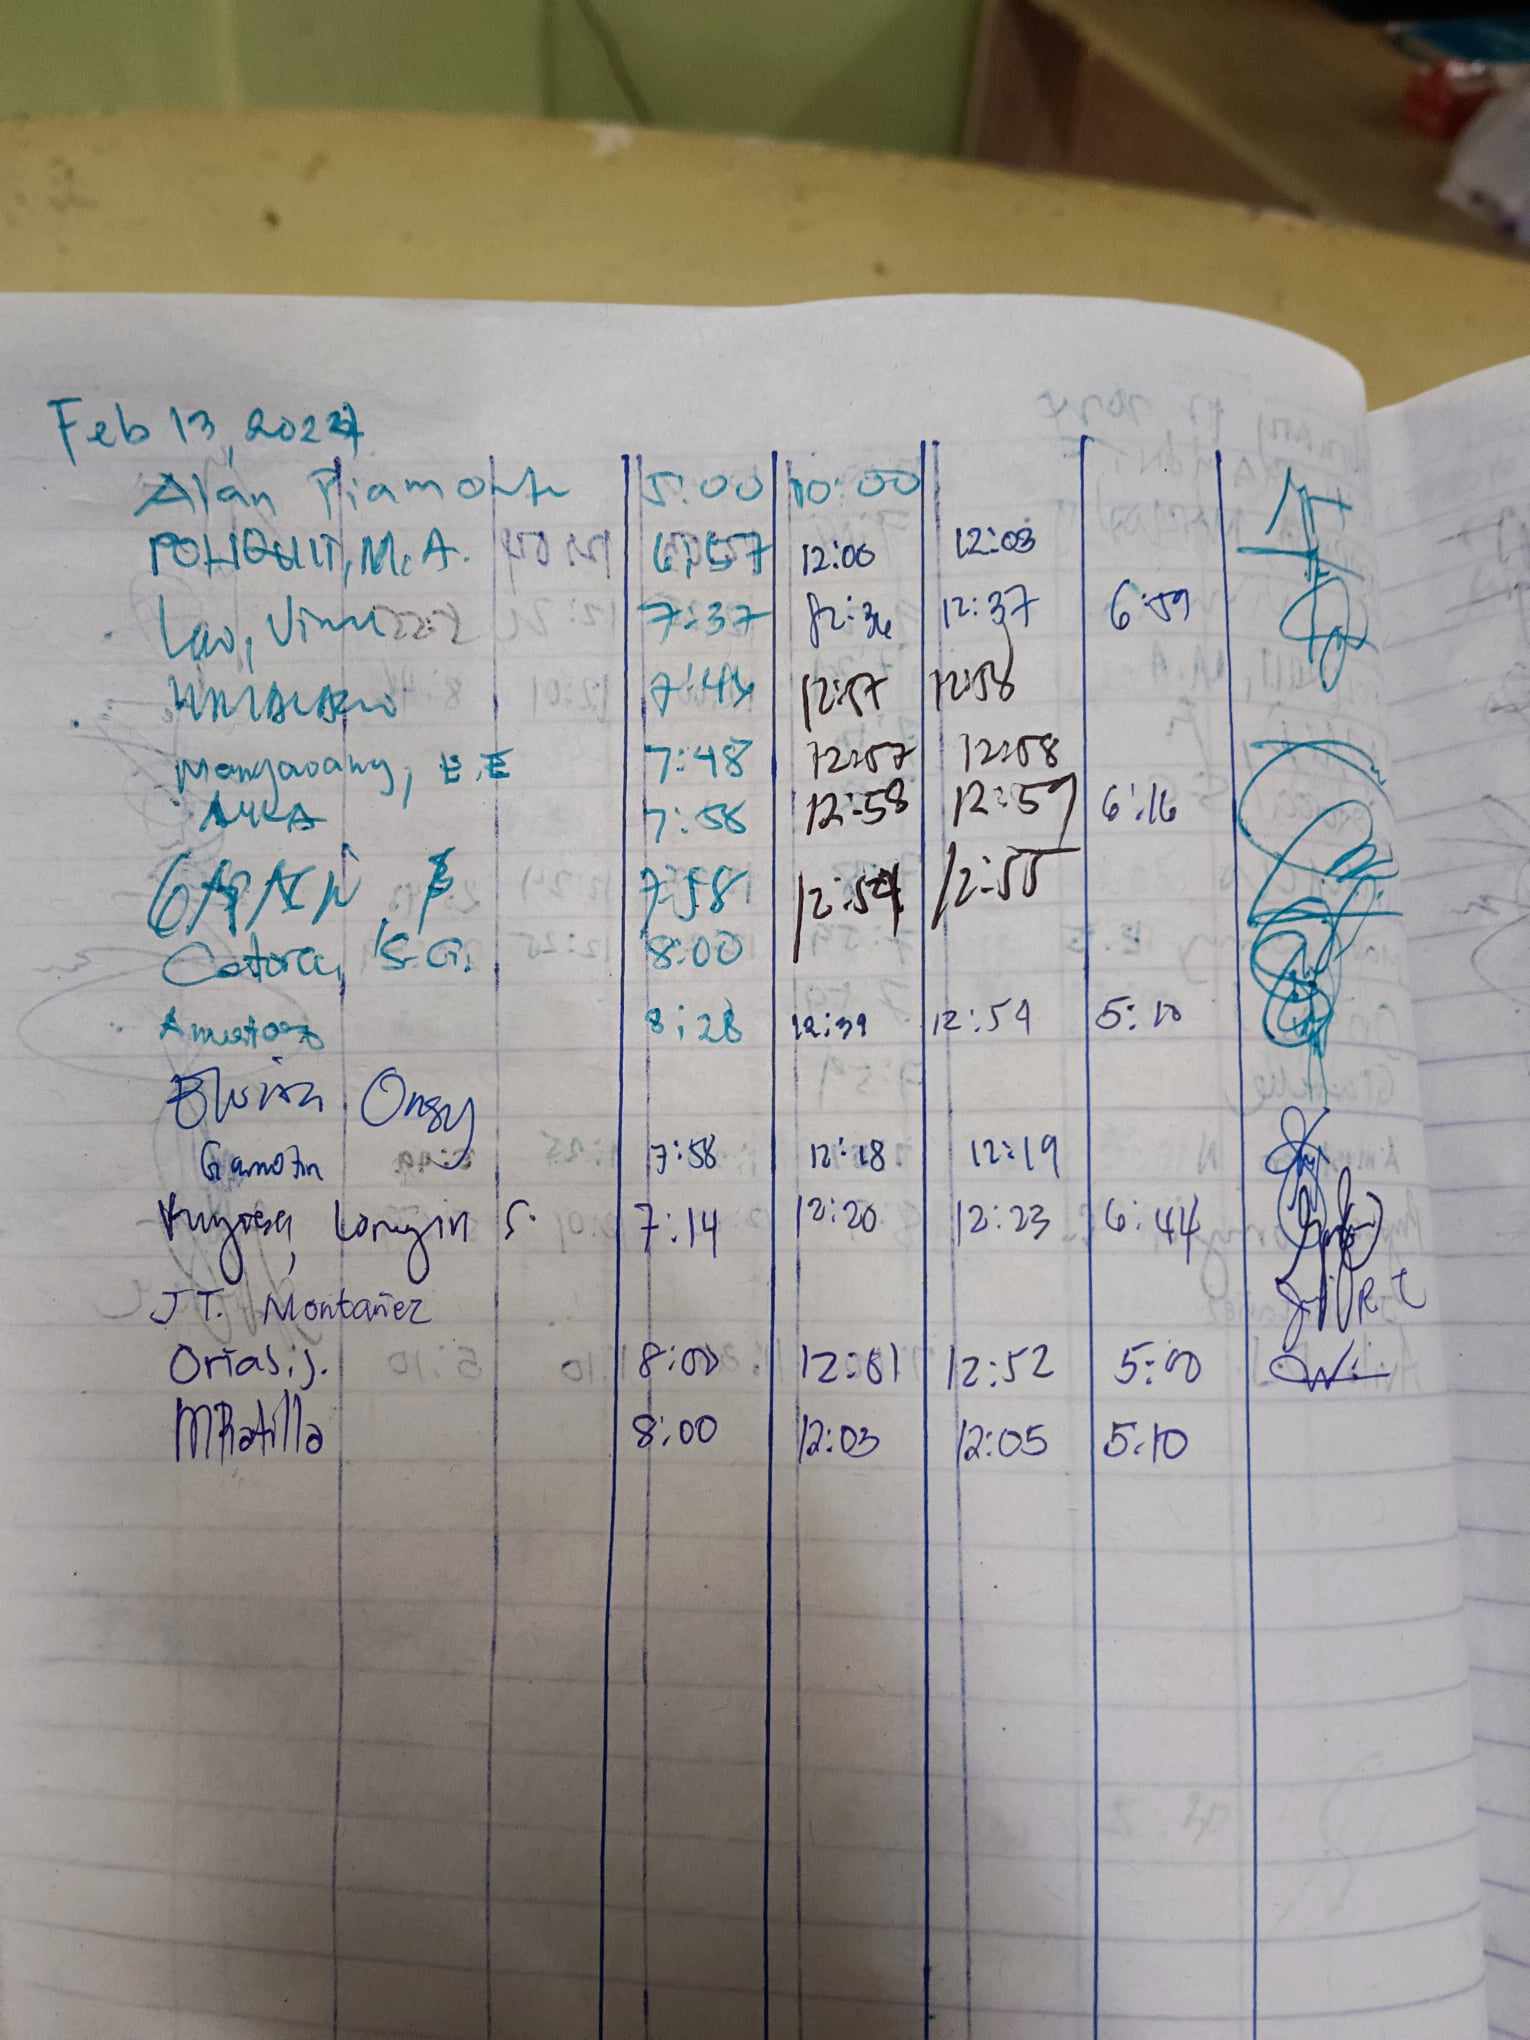 Feb 13, 2024
Alan Piamonte 5:00 10:00
POLIQUIT, M.A. 6:57 12:00 12:03
Lao, 7:37 12:36 12:37 6:59
7:44 12:57 12:58
Mangaoang, E.E 7:48 12:57 12:58
7:58 12:58 12:59 6:16
7:58 12:54 12:55
Catora, S.G. 8:00
8:28 12:39 12:54 5:10
Elvira Ongy
Gamotin 7:58 12:18 12:19
Longin S. 7:14 12:20 12:23 6:44
J T. Montañez
Orias, J. 8:00 12:01 12:52 5:00
MRatilla 8:00 12:03 12:05 5:10